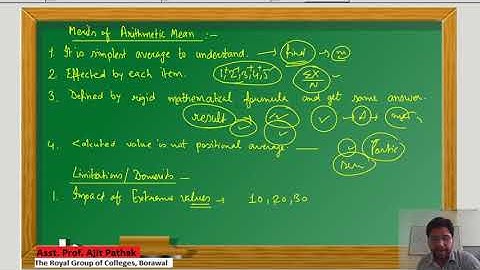 Merits of Arithmetic Mean :-
1. It is simplest average to understand. → find → x
2. Effected by each item. 1+2+3+4+5 ΣX/N
3. Defined by rigid mathematical formula and get same answer.
result
4. Calculated value is not positional average.
Limitations/Demerits -
1. Impact of Extreme values → 10, 20, 30
Asst. Prof. Ajit Pathak
The Royal Group of Colleges, Borawal